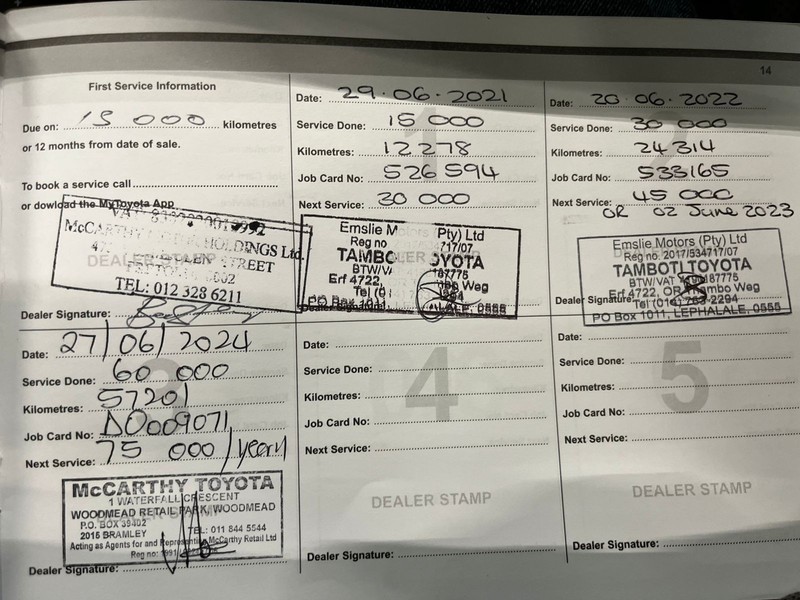 14
First Service Information
Due on: 15 000 kilometres
or 12 months from date of sale.
To book a service call
or dowload the MyToyota App
VAT
McCARTHY HOLDINGS Ltd
STREET
0002
TEL: 012 328 6211
Dealer Signature:
1
Date: 29.06.2021
Service Done: 15 000
Kilometres: 12278
Job Card No: 526 594
Next Service: 30 000
Emslie M Pty) Ltd
Reg no 717/07
TAMBO OYOTA
BTW/V 187775
Erf 4722, Weg
Tel (0
PO Box 1011, LALE, 0555
Dealer Signature:
Date: 20.06.2022
Service Done: 30 000
Kilometres: 24314
Job Card No: 533165
Next Service: 45 000
OR 02 June 2023
Emslie Motors (Pty) Ltd
Reg no. 2017/534717/07
TAMBOTI TOYOTA
BTW/VAT 187775
Erf 4722, Weg
Dealer Signature Tel (014) 763-2294
PO Box 1011, LEPHALALE, 0555
3
Date: 27/06/2024
Service Done: 60 000
Kilometres: 57201
Job Card No: D0009071
Next Service: 75 000/year1
McCARTHY TOYOTA
1 WATERFALL CRESCENT
WOODMEAD RETAIL PARK, WOODMEAD
P.O. BOX 39402
2015 BRAMLEY TEL: 011 844 5544
Acting as Agents for and Represent McCarthy Retail Ltd
Reg no: 1991/
Dealer Signature:
4
Date:
Service Done:
Kilometres:
Job Card No:
Next Service:
DEALER STAMP
Dealer Signature:
5
Date:
Service Done:
Kilometres:
Job Card No:
Next Service:
DEALER STAMP
Dealer Signature: